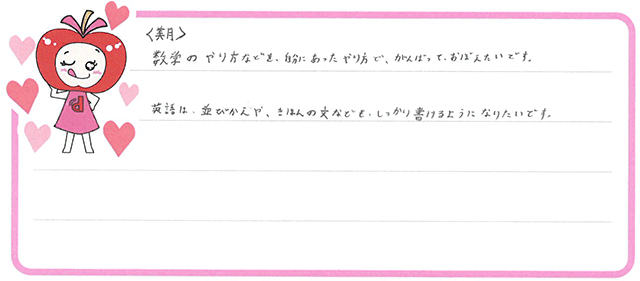 <美月>
数学の やり方などを、自分に あった やり方で、がんばって、おぼえたいです。
英語は、並びかえや、きほんの文などを、しっかり書けるように なりたいです。
d